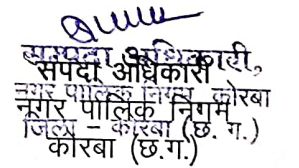 सम्पदा अधिकारी,
संपदा अधिकारी
नगर पालिक निगम, कोरबा
नगर पालिक निगम
जिला - कोरबा (छ. ग.)
कोरबा (छ.ग.)